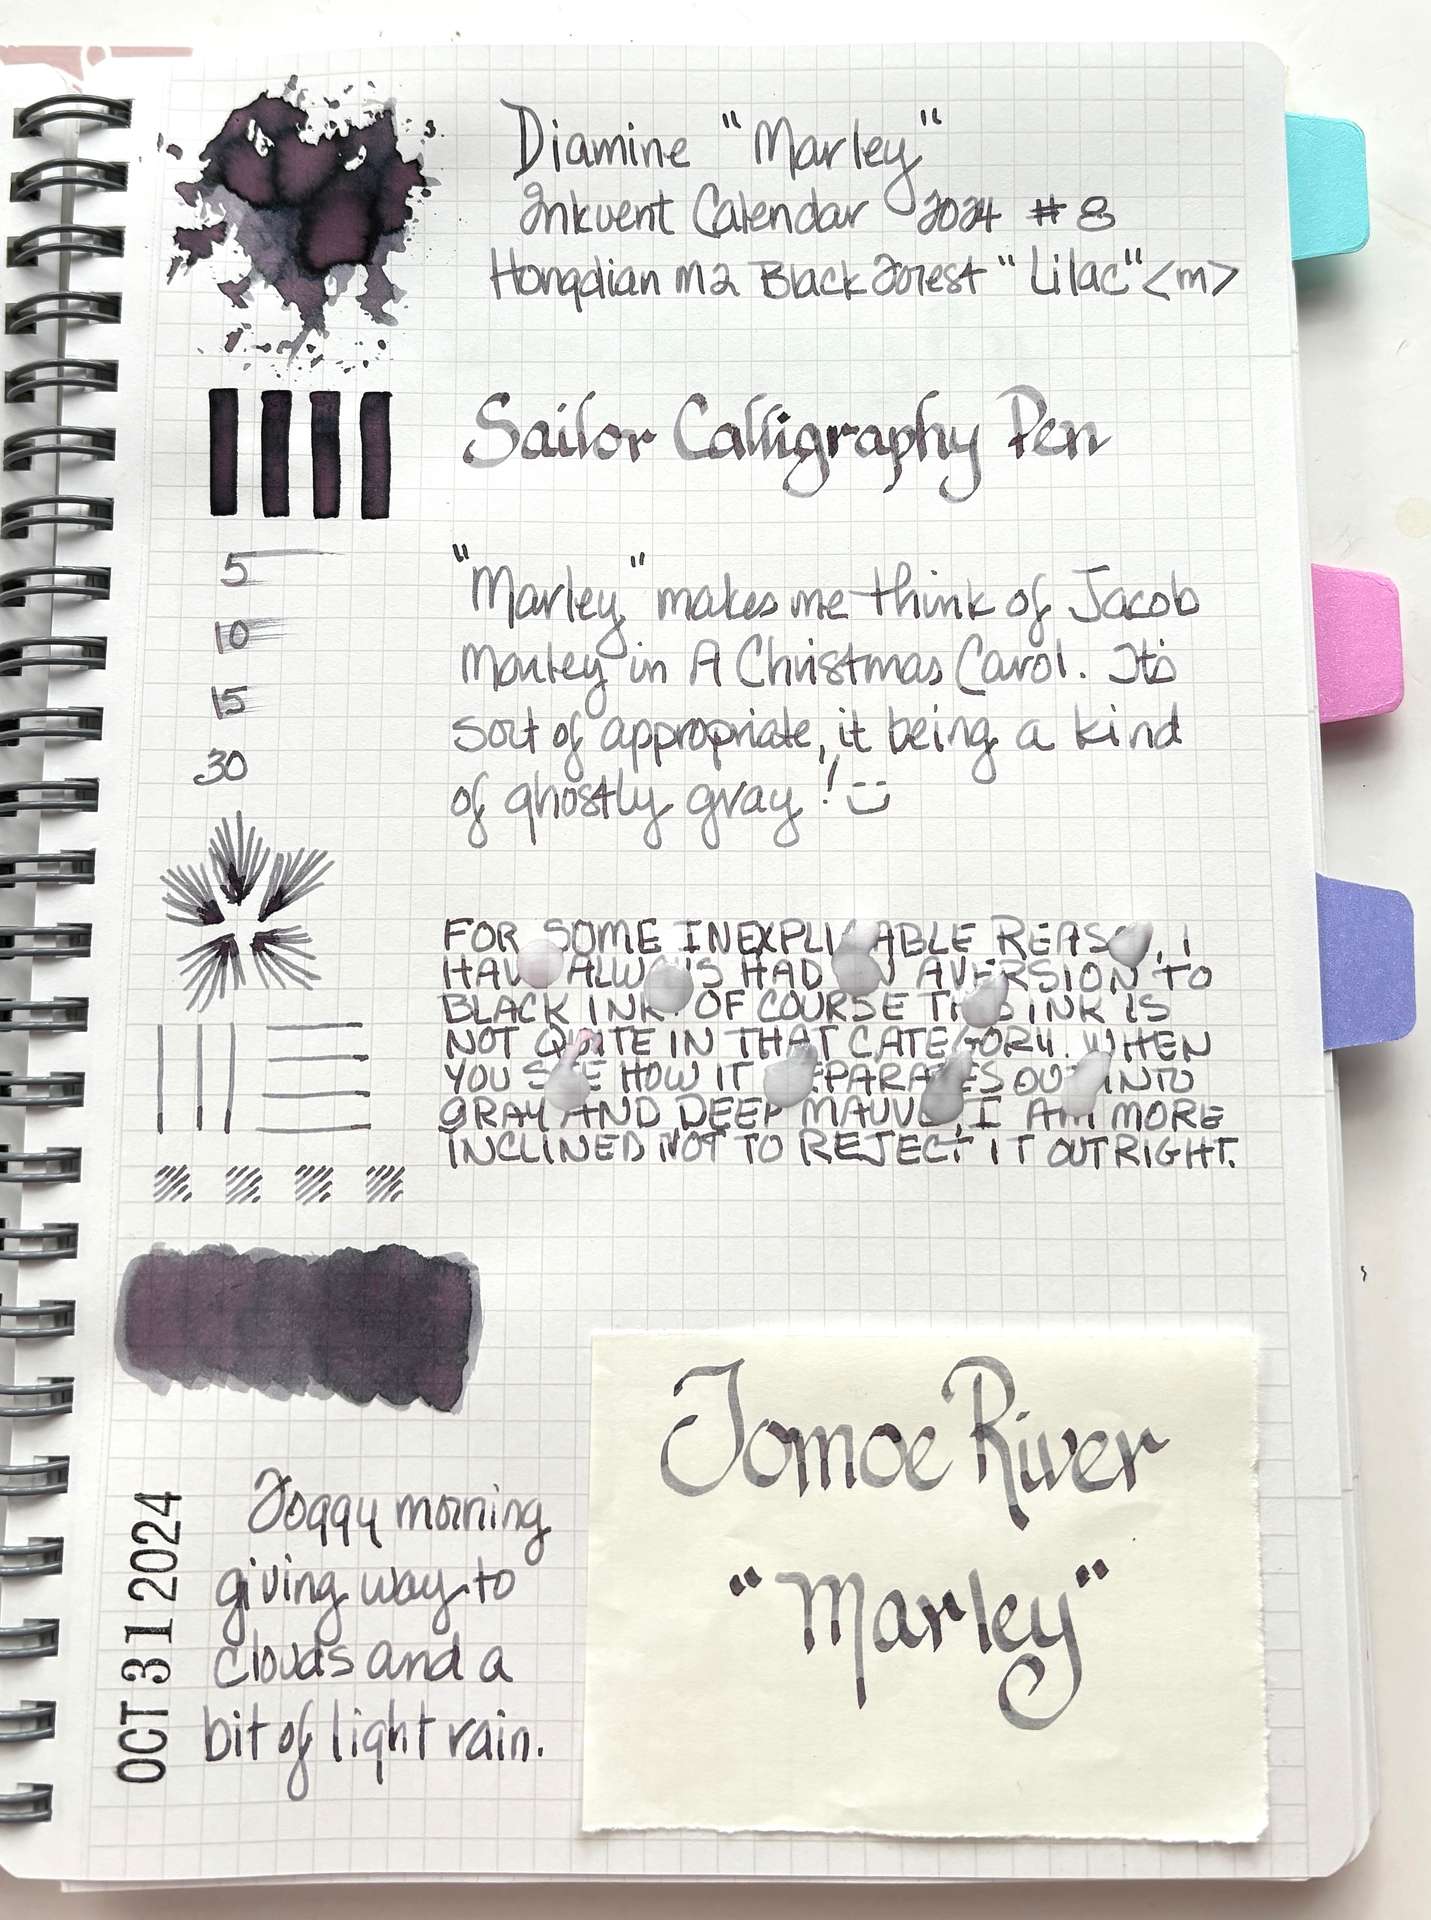 Diamine "Marley"
Inkvent Calendar 2024 #8
Hongdian M2 Black Forest "Lilac" <m>
Sailor Calligraphy Pen
5
10
15
30
"Marley" makes me think of Jacob
Marley in A Christmas Carol. It's
sort of appropriate, it being a kind
of ghostly gray!
FOR SOME INEXPLICABLE REASON, I
HAVE ALWAYS HAD AN AVERSION TO
BLACK INK. OF COURSE THIS INK IS
NOT QUITE IN THAT CATEGORY. WHEN
YOU SEE HOW IT SEPARATES OUT INTO
GRAY AND DEEP MAUVE, I AM MORE
INCLINED NOT TO REJECT IT OUTRIGHT.
OCT 31 2024
Foggy morning
giving way to
clouds and a
bit of light rain.
Tomoe River
"Marley"